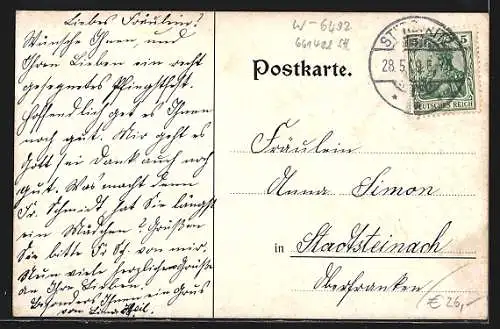 Liebes Fräulein!
Wünsche Ihnen, und
Ihren Lieben ein recht
gesegnetes Pfingstfest.
Hoffendlich get es Ihnen
noch gut. Mir geht es
Gott sei Dank auch noch
gut. Was macht denn
Fr. Schmidt hat Sie längst
ein Mädchen? Grüßen
Sie bitte Fr. Sch. von mir.
Nun viele herzlichen Grüße
an Ihre Lieben.
Besonders Ihnen ein Gruß
von
W-6492
Postkarte.
28.5.
5
DEUTSCHES REICH
Fräulein
Anna Simon
in Stadtsteinach
Oberfranken
€ 26,-